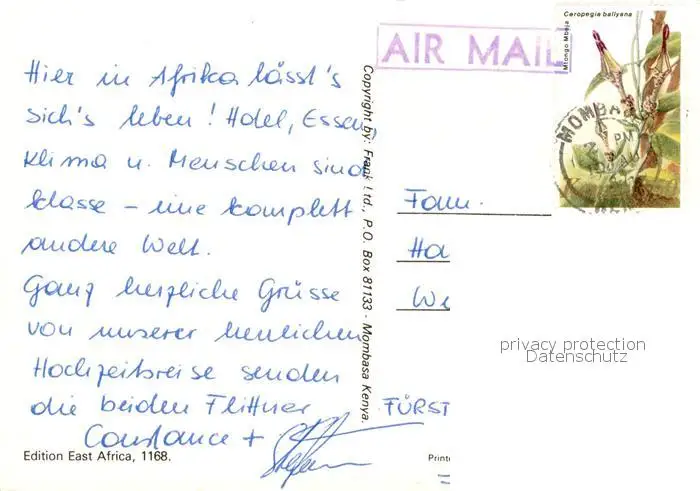 Hier in Afrika lässt's
sich's leben! Hotel, Essen,
Klima u. Menschen sind
klasse – eine komplett
andere Welt.
Ganz herzliche Grüsse
von unserer herrlichen
Hochzeitsreise senden
die beiden Flittner
Constance + Stefan
Edition East Africa, 1168.
Copyright by: Frank Ltd., P.O. Box 81133 - Mombasa Kenya.
AIR MAIL
Ceropegia ballyana
Mtongo Mbeja
MOMBASA
Fam.
Ha
We
privacy protection
Datenschutz
FÜRST
Printe